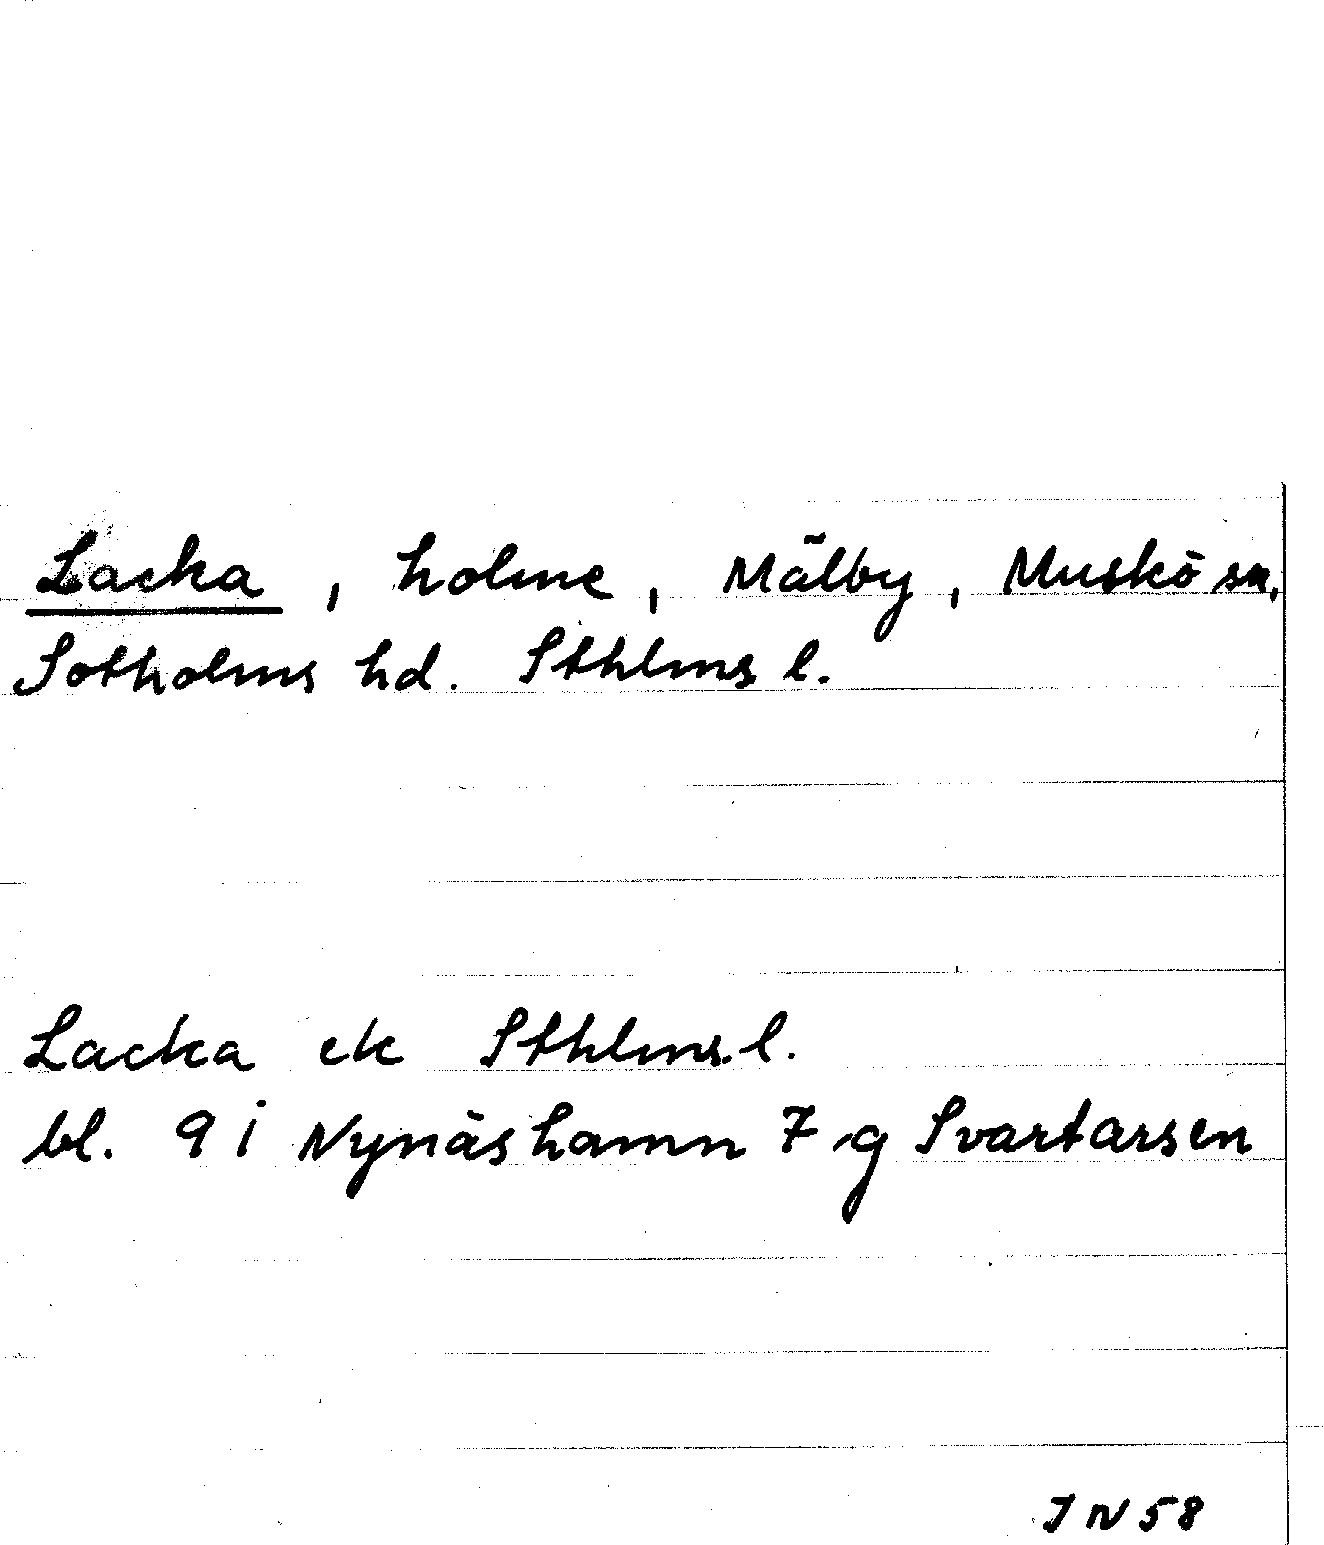 Lacka, holme, Mälby, Muskö sn,
Sotholms hd. Sthlms l.
Lacka ek Sthlms. l.
bl. 9 i Nynäshamn 7 g Svartarsen
IN 58